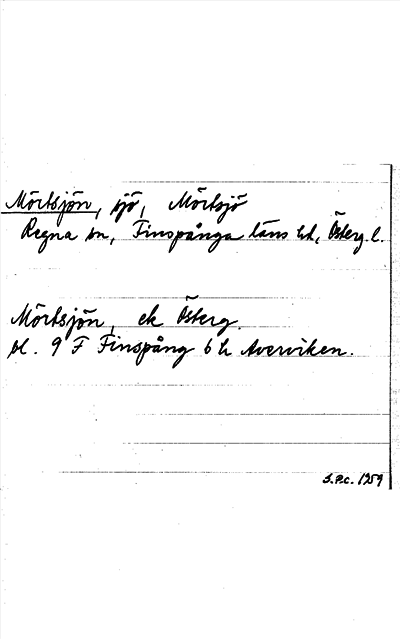 Mörtsjön, sjö, Mörtsjö
Regna sn, Finspånga läns hd, Österg. l.
Mörtsjön, ek Österg.
bl. 9 F Finspång 6 h Averviken.
S.P.C. 1959